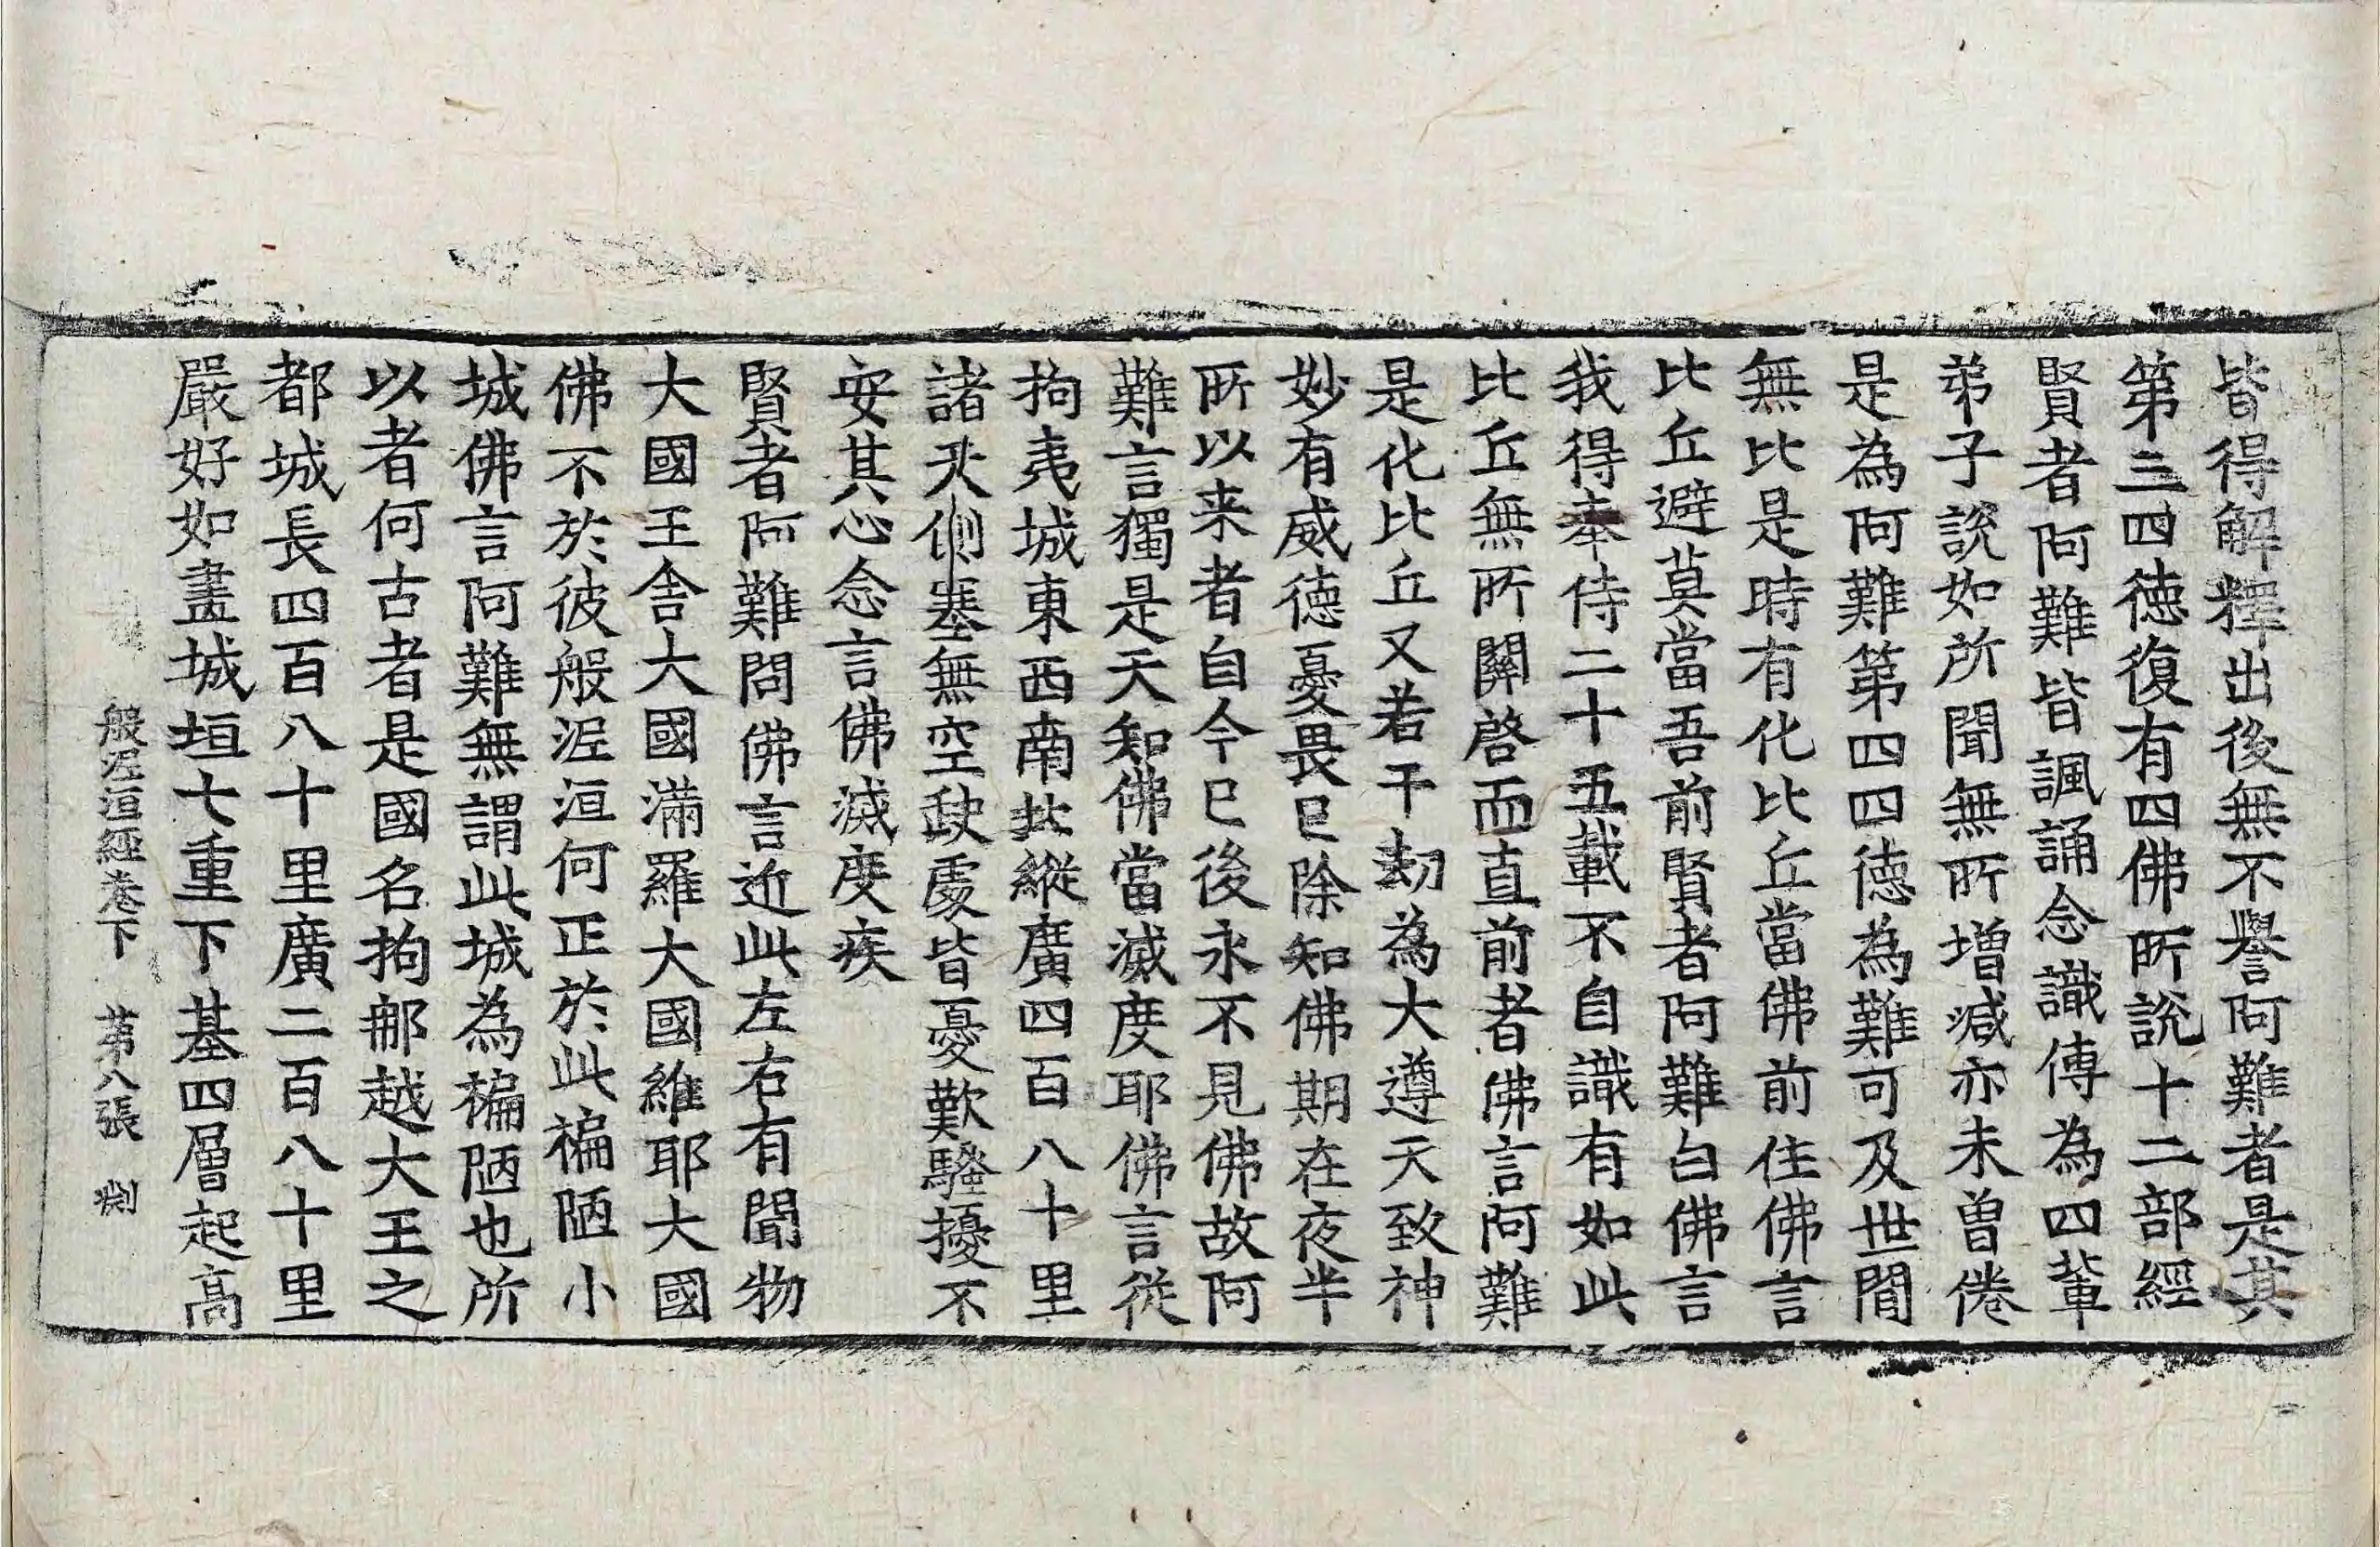 皆得解釋出後無不譽阿難者是其
第三四德復有四佛所說十二部經
賢者阿難皆諷誦念識傳為四輩
弟子說如所聞無所增減亦未曽倦
是為阿難第四四德為難可及世間
無比是時有化比丘當佛前住佛言
比丘避莫當吾前賢者阿難白佛言
我得奉侍二十五載不自識有如此
比丘無所關啓而直前者佛言阿難
是化比丘又若干劫為大遵天致神
妙有威德憂畏已除知佛期在夜半
所以来者自今已後永不見佛故阿
難言獨是天知佛當滅度耶佛言從
拘夷城東西南北縱廣四百八十里
諸天側塞無空缺處皆憂歎騷擾不
安其心念言佛滅度疾
賢者阿難問佛言近此左右有聞物
大國王舍大國滿羅大國維耶大國
佛不於彼般泥洹何正於此褊陋小
城佛言阿難無謂此城為褊陋也所
以者何古者是國名拘那越大王之
都城長四百八十里廣二百八十里
嚴好如畫城垣七重下基四層起高
般泥洹經卷下 第八張